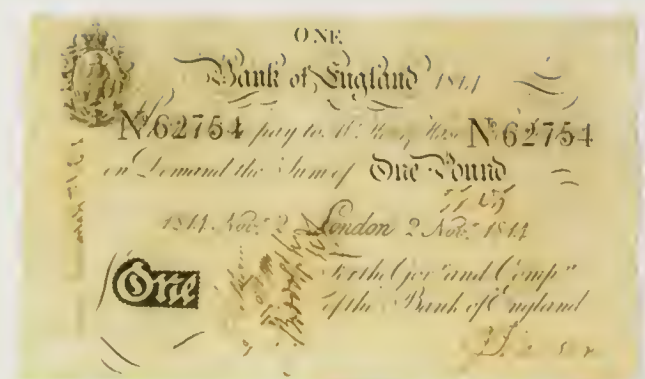 ONE
Bank of England 1814
No. 62754 pay to Mr. Hase No. 62754
on Demand the Sum of One Pound
1814 Novr. 2 London 2 Novr. 1814
For the Govr. and Compa.
One of the Bank of England